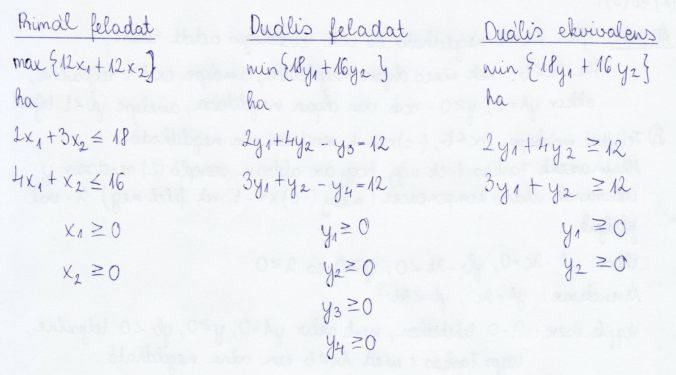 Primál feladat
max{12x₁+12x₂}
ha
2x₁+3x₂≤18
4x₁+x₂≤16
x₁≥0
x₂≥0
Duális feladat
min{18y₁+16y₂}
ha
2y₁+4y₂-y₃=12
3y₁+y₂-y₄=12
y₁≥0
y₂≥0
y₃≥0
y₄≥0
Duális ekvivalens
min{18y₁+16y₂}
ha
2y₁+4y₂≥12
3y₁+y₂≥12
y₁≥0
y₂≥0